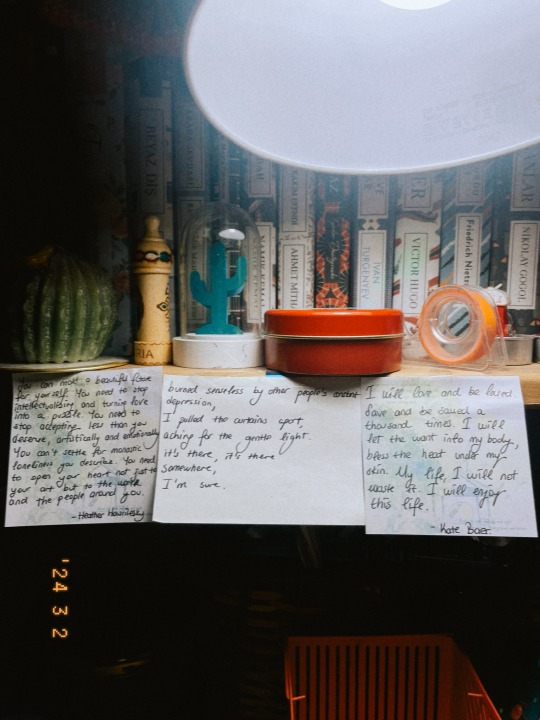 BEYAZ DİŞ
AHMET MİTH
IVAN
TURGENYEV
VICTOR HUGO
Friedrich Nietz
NIKOLAY GOGOL
RIA
You can make a beautiful future
for yourself. You need to stop
intellectualizing and turning love
into a puzzle. You need to
stop accepting less than you
deserve, artistically and emotionally.
You can't settle for monastic
loneliness you describe. You need
to open your heart not just to
your art but to the world
and the people around you.
- Heather Havrilesky
burned senseless by other people's constant
depression,
I pulled the curtains apart,
aching for the gentle light.
it's there, it's there
somewhere,
I'm sure.
I will love and be loved
save and be saved a
thousand times. I will
let the want into my body,
bless the heat under my
skin. My life, I will not
waste it. I will enjoy
this life.
- Kate Baer
'24 3 2